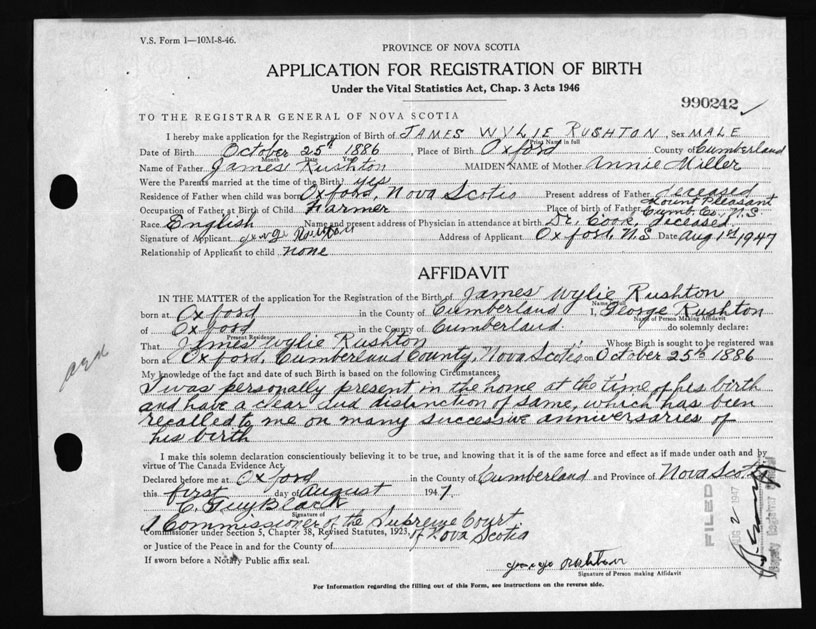 V.S. Form 1—10M-8-46.
PROVINCE OF NOVA SCOTIA
APPLICATION FOR REGISTRATION OF BIRTH
Under the Vital Statistics Act, Chap. 3 Acts 1946
990242
TO THE REGISTRAR GENERAL OF NOVA SCOTIA
I hereby make application for the Registration of Birth of JAMES WYLIE RUSHTON, Sex MALE
Print Name in full
Date of Birth October 25th 1886, Place of Birth Oxford County of Cumberland
Month Date Year
Name of Father James Rushton MAIDEN NAME of Mother Annie Miller
Were the Parents married at time of the Birth? yes
Residence of Father when child was born Oxford, Nova Scotia Present address of Father deceased
Occupation of Father at Birth of Child Farmer Place of birth of Father Mount Pleasant Cumb. Co., N.S
Race English Name and present address of Physician in attendance at birth Dr. Cook, deceased
Signature of Applicant Address of Applicant Oxford, N.S Date Aug 1st 1947
Relationship of Applicant to child none
AFFIDAVIT
IN THE MATTER of the application for the Registration of the Birth of James Wylie Rushton
Name in full
born at Oxford in the County of Cumberland I, George Rushton
Name of Person Making Affidavit
of Oxford in the County of Cumberland. do solemnly declare:
Present Residence
That James Wylie Rushton Whose Birth is sought to be registered was
born at Oxford, Cumberland County, Nova Scotia October 25th 1886
My knowledge of the fact and date of such Birth is based on the following Circumstances:
I was personally present in the home at the time of his birth
and have a clear and distinction of same, which has been
recalled to me on many successive anniversaries of
his birth
I make this solemn declaration conscientiously believing it to be true, and knowing that it is of the same force and effect as if made under oath and by
virtue of The Canada Evidence Act.
Declared before me at Oxford in the County of Cumberland and Province of Nova Scotia
this first day of August 1947.
C. Guy Black
Signature of
A Commissioner of the Supreme Court
Commissioner under Section 5, Chapter 38, Revised Statutes, 1923, of Nova Scotia
or Justice of the Peace in and for the County of
If sworn before a Notary Public affix seal.
George Rushton
Signature of Person making Affidavit
For Information regarding the filling out of this Form, see instructions on the reverse side.
FILED
2 1947